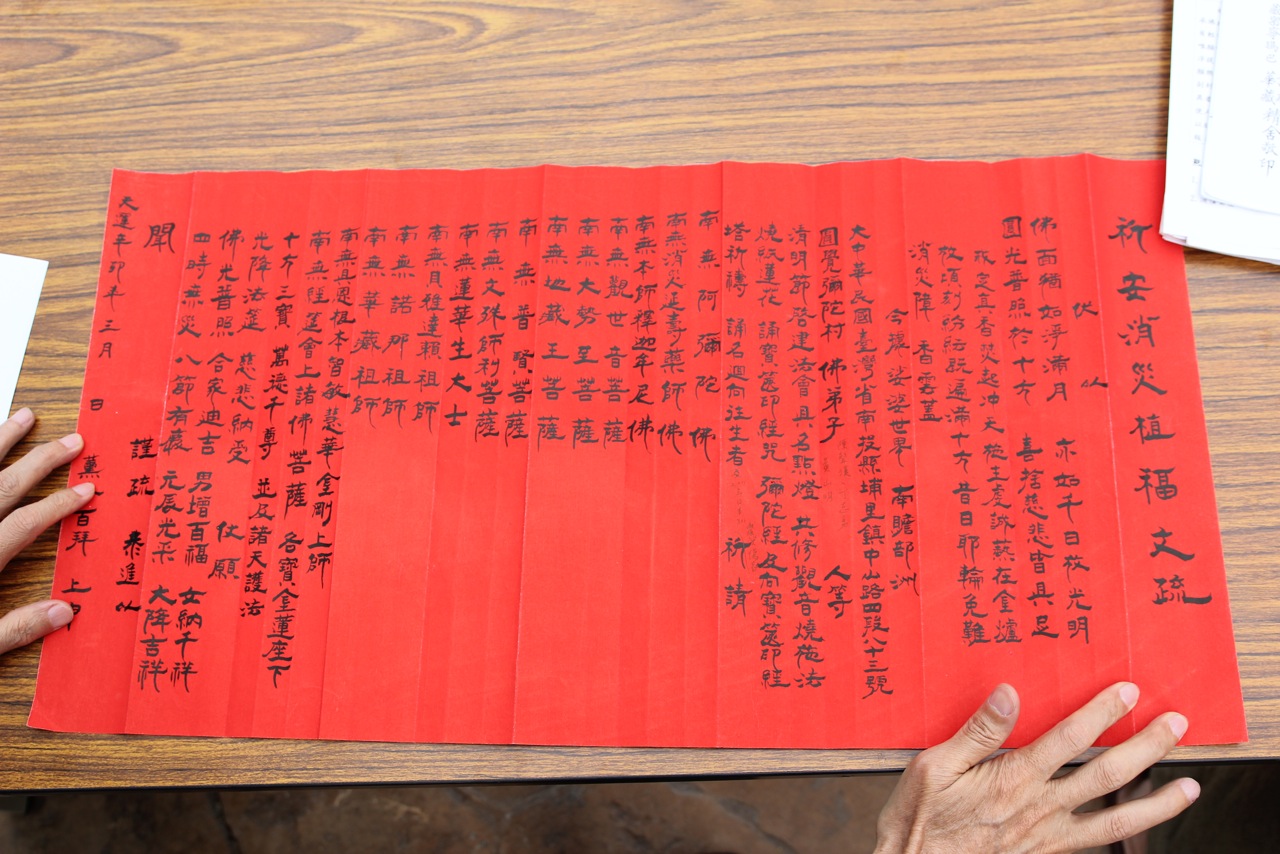 祈安消災植福文疏
伏以
佛面猶如淨滿月 亦如千日放光明
圓光普照於十方 喜捨慈悲皆具足
戒定真香焚起沖天 施主虔誠爇在金爐
放頃刻紛紜遍滿十方 昔日耶輪免難
消災障 香雲蓋
今據娑婆世界 南瞻部洲
大中華民國臺灣省南投縣埔里鎮中山路四段八十三號
圓覺彌陀村 佛弟子 人等
清明節啓建法會 具名點燈 共修觀音燒施法
燒紙蓮花 誦寶篋印經咒 彌陀經及向寶篋印經
塔祈禱 誦名迴向往生者 祈請
南無阿彌陀佛
南無消災延壽藥師佛
南無本師釋迦牟尼佛
南無觀世音菩薩
南無大勢至菩薩
南無地藏王菩薩
南無普賢菩薩
南無文殊師利菩薩
南無蓮華生大士
南無貝雅達賴祖師
南無諾那祖師
南無華藏祖師
南無具恩根本智敏慧華金剛上師
南無經筵會上諸佛 菩薩 各寶金蓮座下
十方三寶 萬德千尊 並及諸天護法
光降法筵 慈悲納受 仗願
佛光普照 合家迪吉 男增百福 女納千祥
四時無災 八節有慶 元辰光采 大降吉祥
謹疏 恭進以
聞
天運辛卯年三月 日 薰 百拜 上申